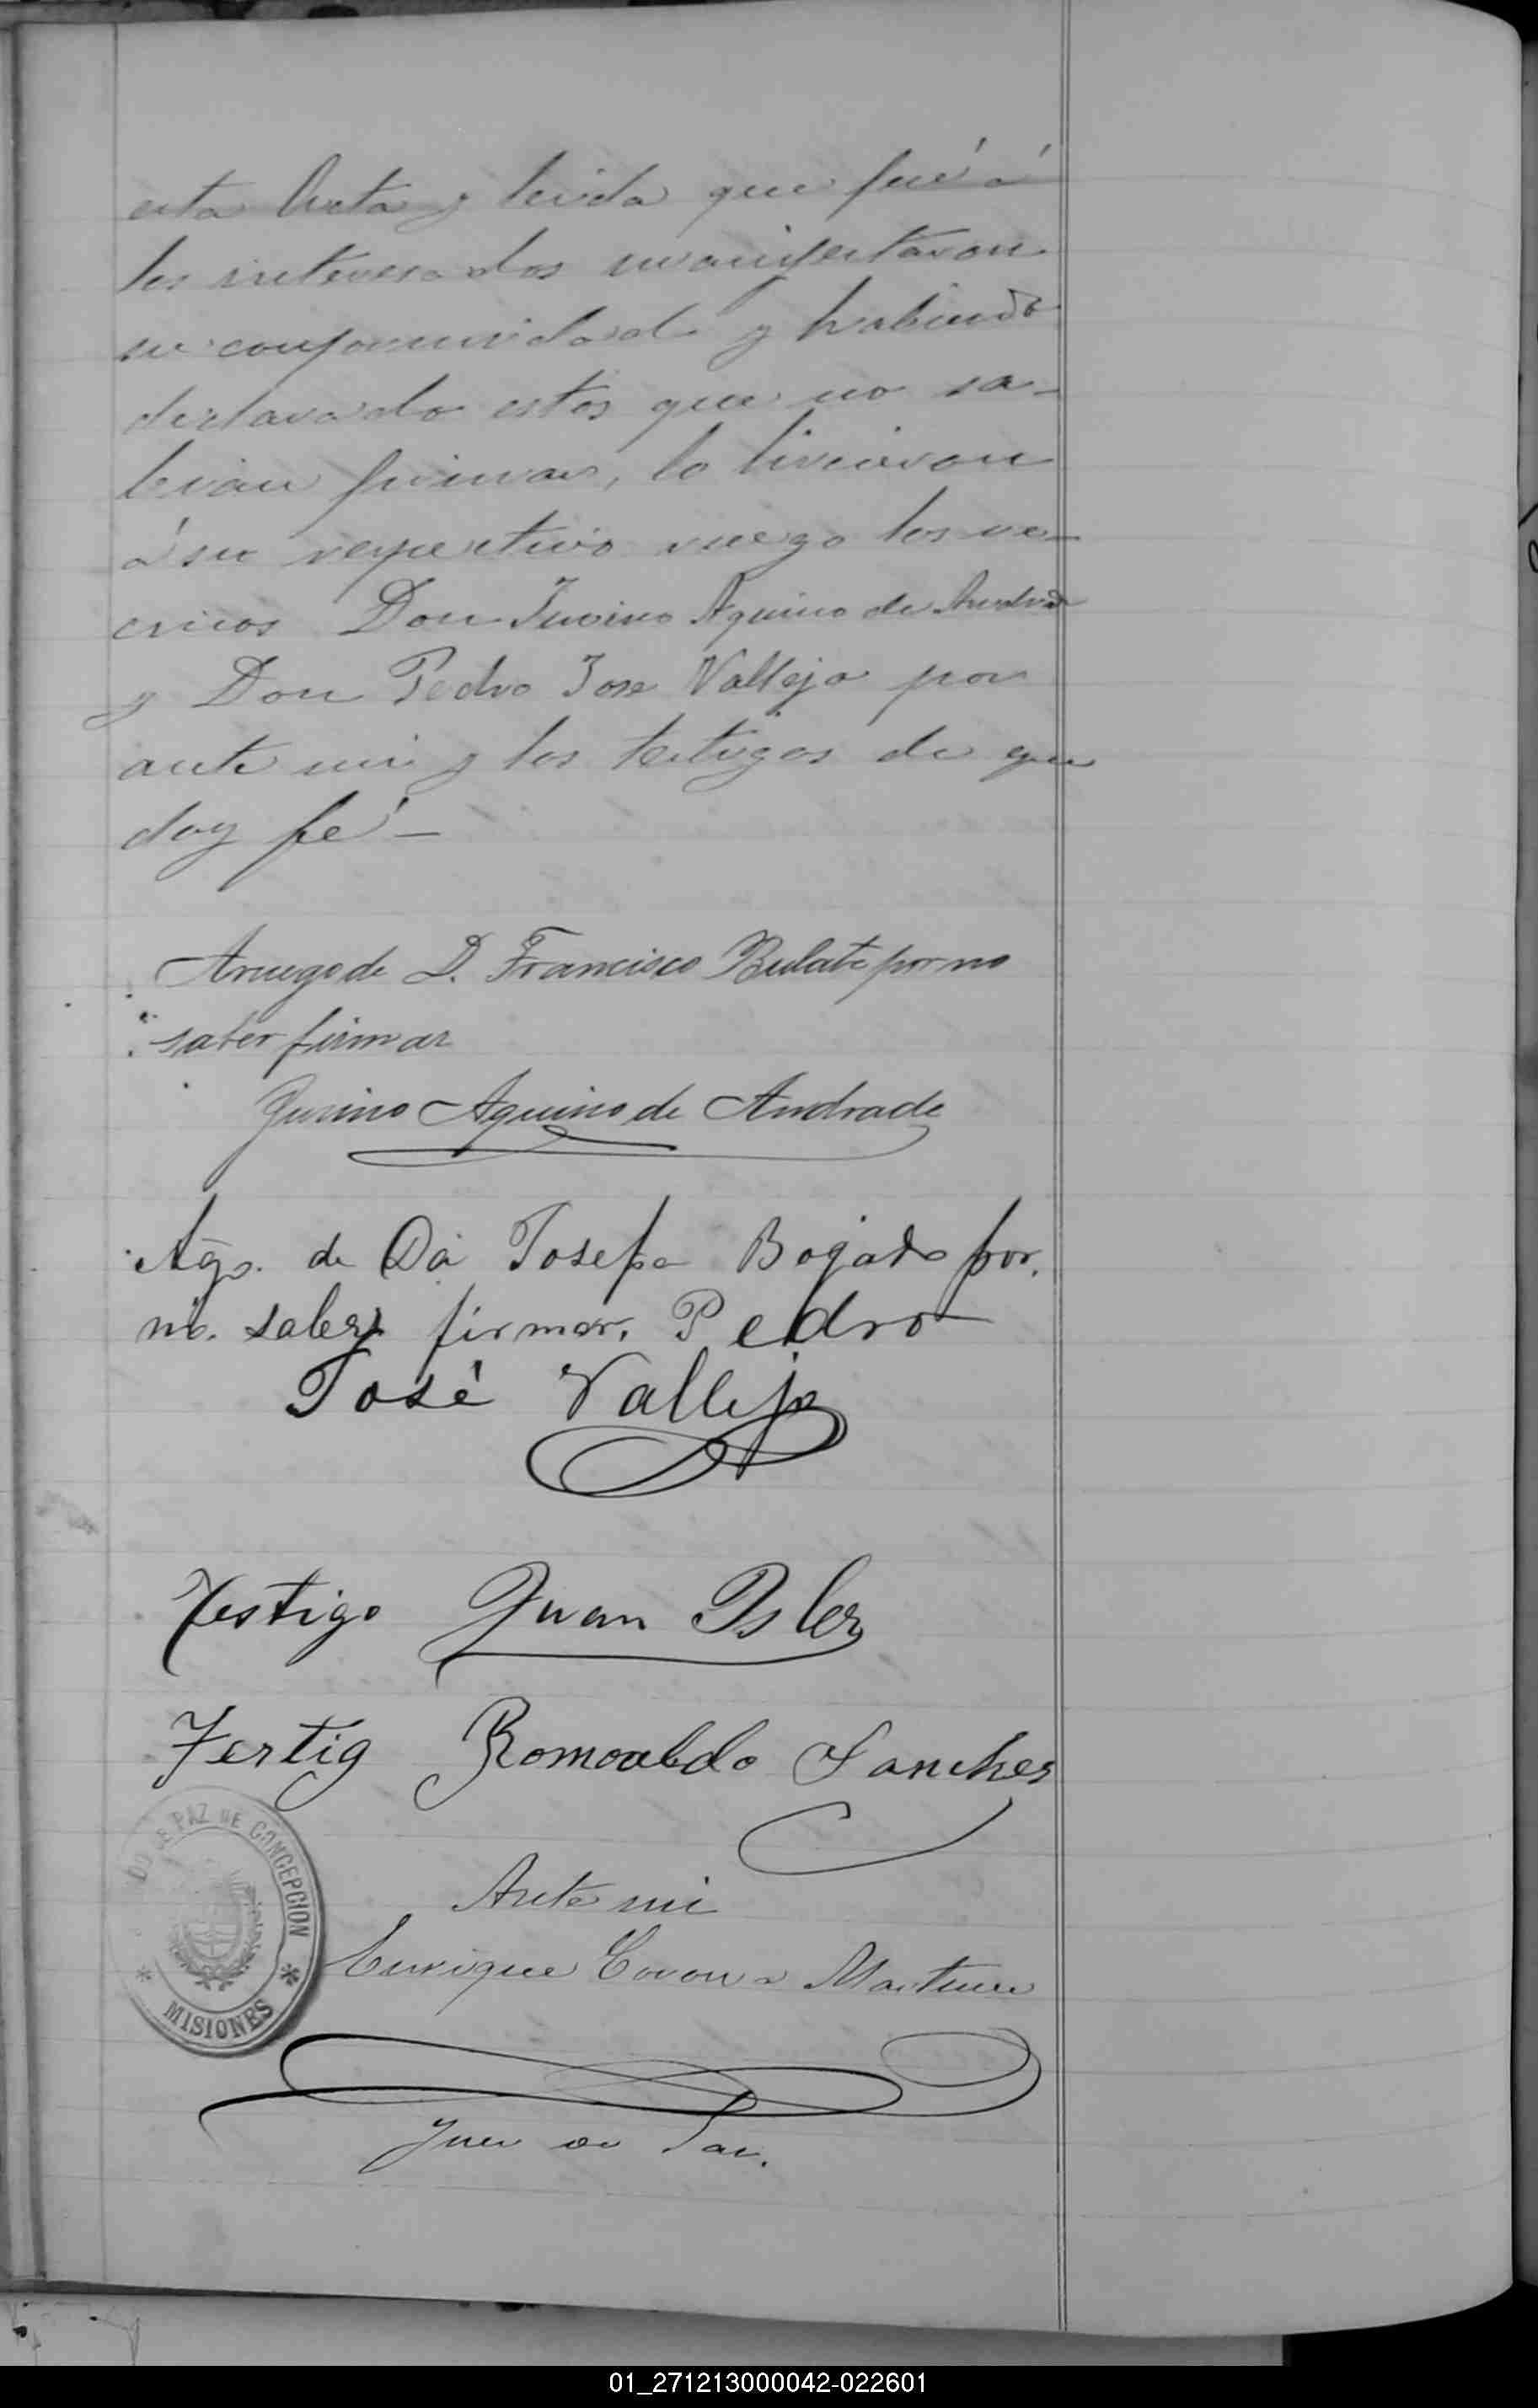 esta Acta y leida que fué á
los interesados manifestaron
su conformidad y habiendo
declarado estos que no sa-
bian firmar, lo hicieron
á su respectivo ruego los ve-
cinos Don Juvino Aquino de Andrade
y Don Pedro Jose Vallejo por
ante mi y los testigos de que
doy fé —
Aruego de D. Francisco Bulate por no
saber firmar
Juvino Aquino de Andrade
Ago. de Da Josefa Bogado por.
no. saber firmar. Pedro
José Vallejo
Testigo Juan Isler
Testig Romoaldo Sanches
DO DE PAZ DE CONCEPCION
* MISIONES *
Ante mi
Enrique Corona Martinez
Juez de Paz.
01_271213000042-022601